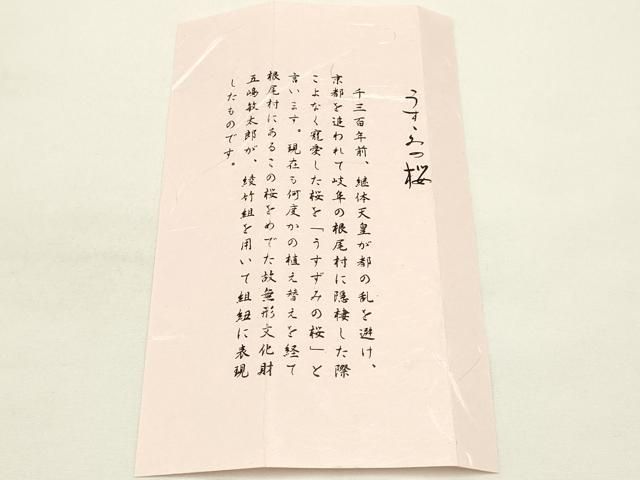 うすゞみ桜
千三百年前、継体天皇が都の乱を避け、
京都を追われて岐阜の根尾村に隠棲した際
こよなく寵愛した桜を「うすずみの桜」と
言います。現在も何度かの植え替えを経て
根尾村にあるこの桜をめでた故無形文化財
五嶋敏太郎が、綾竹組を用いて組紐に表現
したものです。